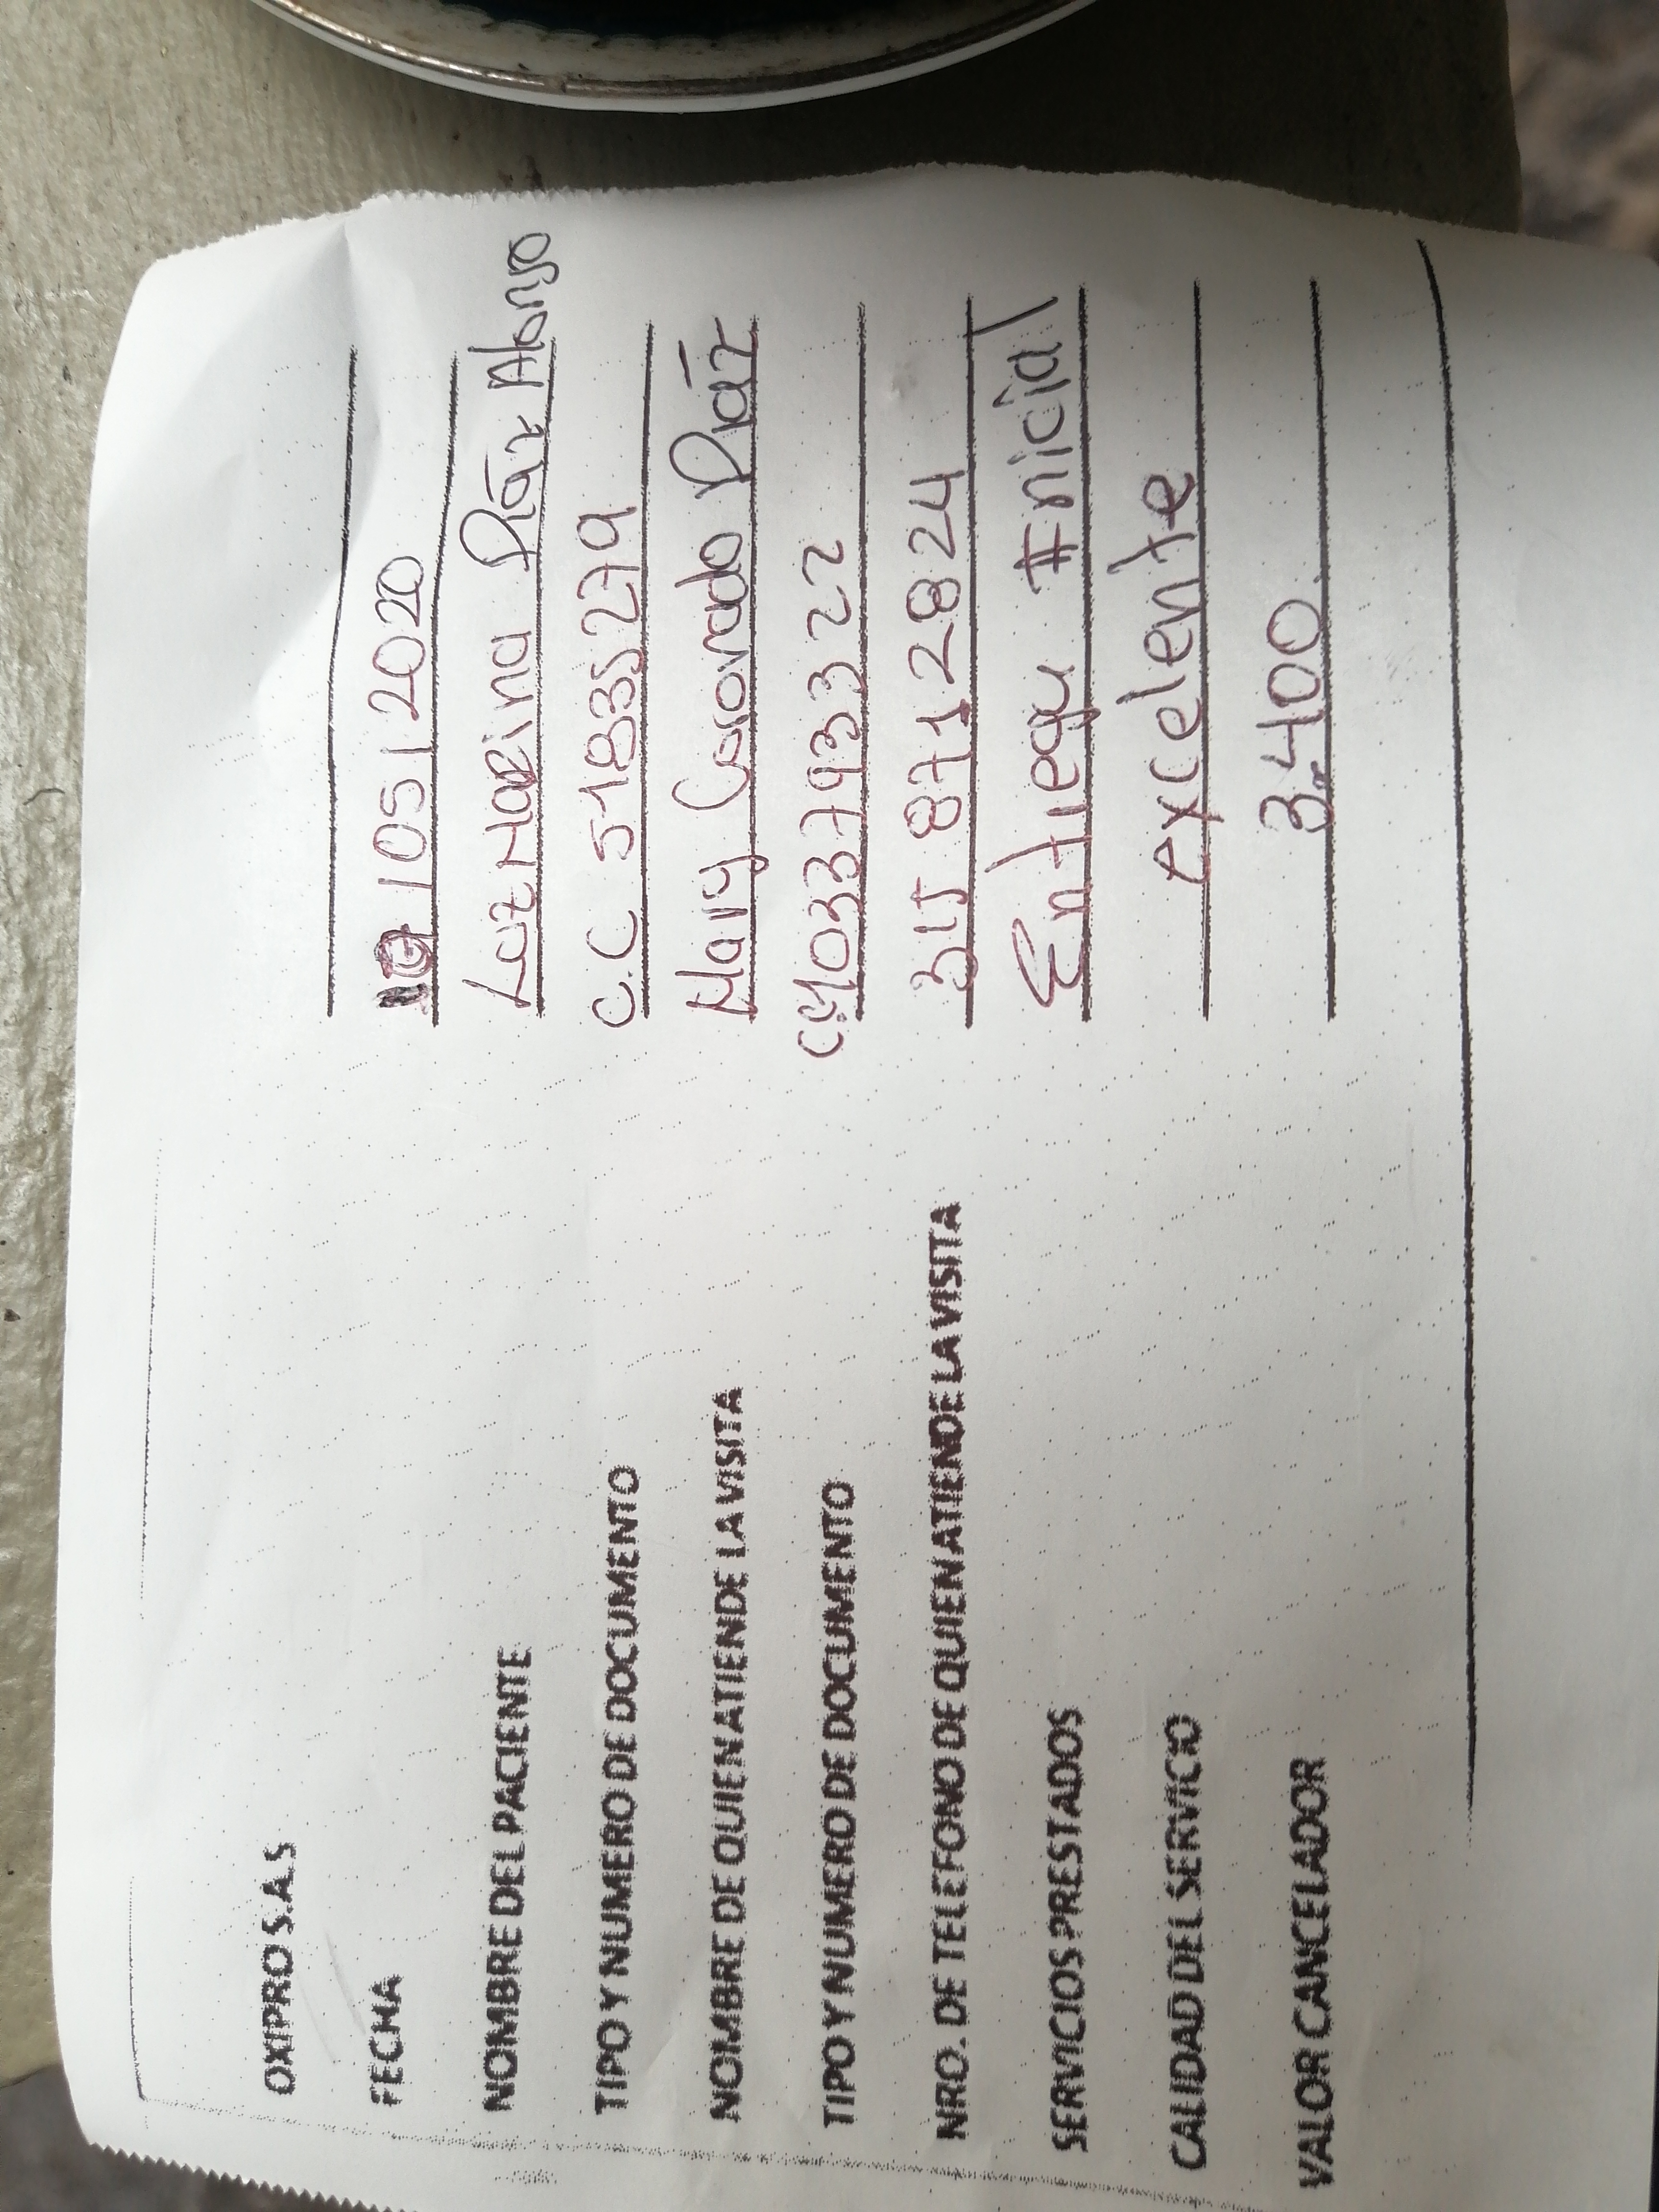 OXIPRO S.A.S
FECHA 10/05/2020
NOMBRE DEL PACIENTE Luz Marina Díaz Alonso
TIPO Y NUMERO DE DOCUMENTO C.C 51835279
NOMBRE DE QUIEN ATIENDE LA VISITA Mary Coronado Díaz
TIPO Y NUMERO DE DOCUMENTO CC 1033793322
NRO. DE TELEFONO DE QUIEN ATIENDE LA VISITA 315 8712824
SERVICIOS PRESTADOS Entrega Inicial
CALIDAD DEL SERVICIO excelente
VALOR CANCELADOR 3.400